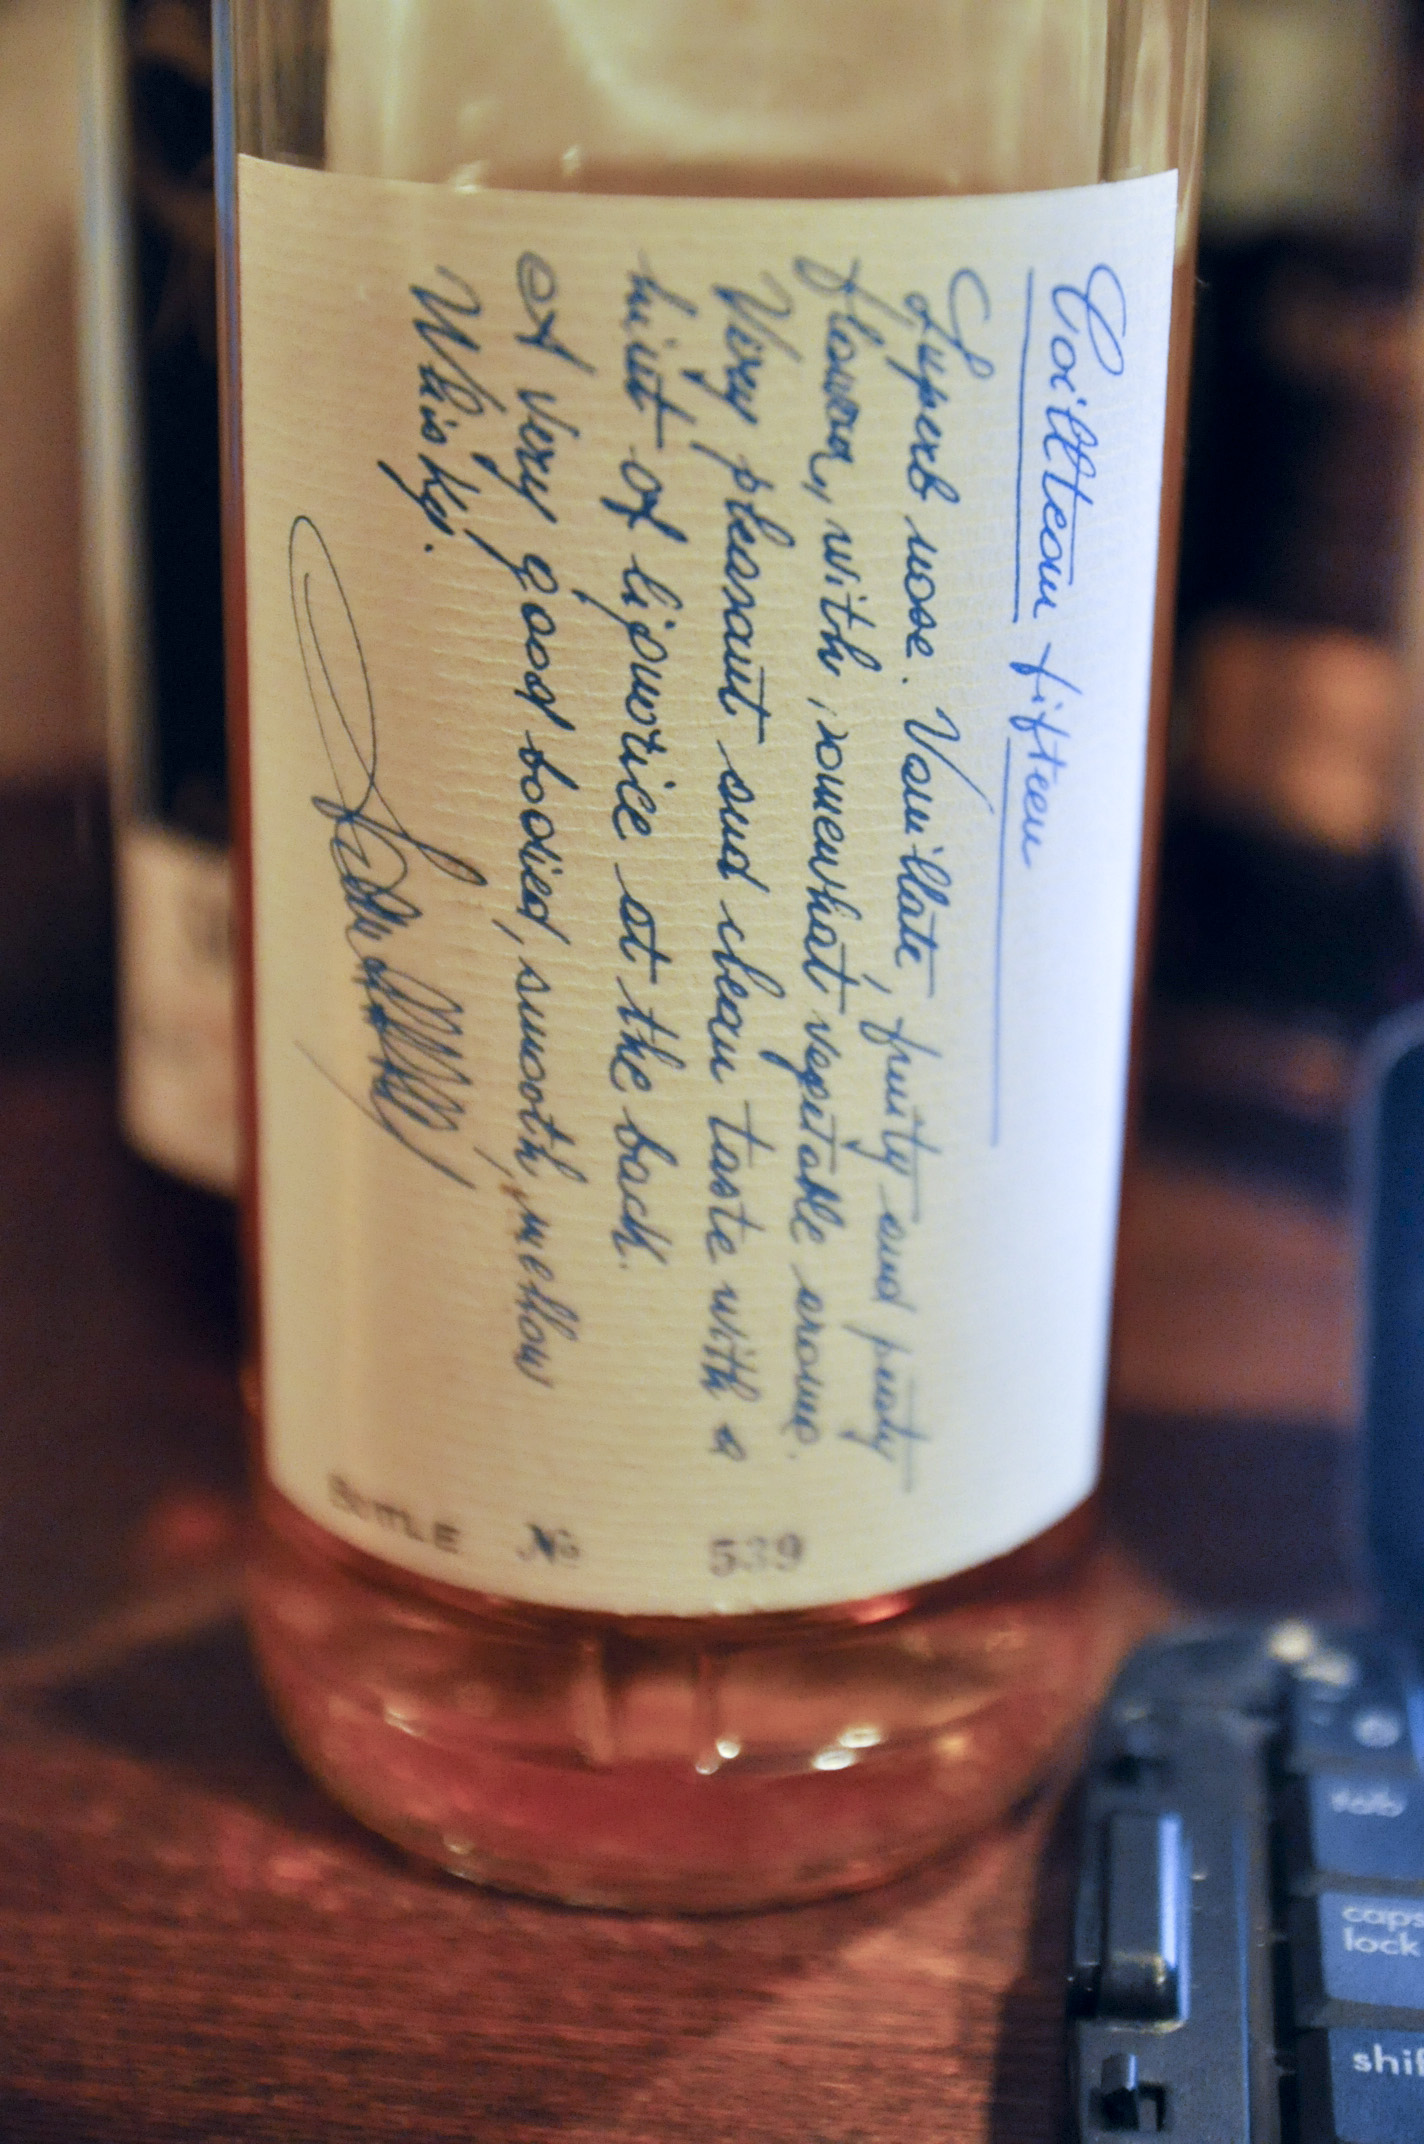 Coilltean fifteen
Superb nose. Vanillate, fruity and peaty
flavour, with somewhat vegetable aroma.
Very pleasant and clean taste with a
hint of liquorice at the back.
A very good bodied, smooth, mellow
Whisky.
BOTTLE № 539
tab
caps
lock
shif